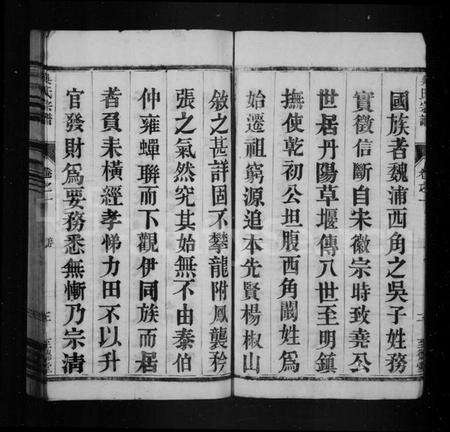 國族者魏浦西角之吳子姓務
實徵信斷自宋徽宗時致堯公
世居丹陽草堰傳八世至明鎮
撫使乾初公坦腹西角闞姓爲
始遷祖窮源追本先賢楊椒山
敘之甚詳固不攀龍附鳳襲矜
張之氣然究其始無不由泰伯
仲雍蟬聯而下觀伊同族而居
者負耒橫經孝悌力田不以升
官發財爲要務悉無慚乃宗清
吳氏宗譜
卷之一